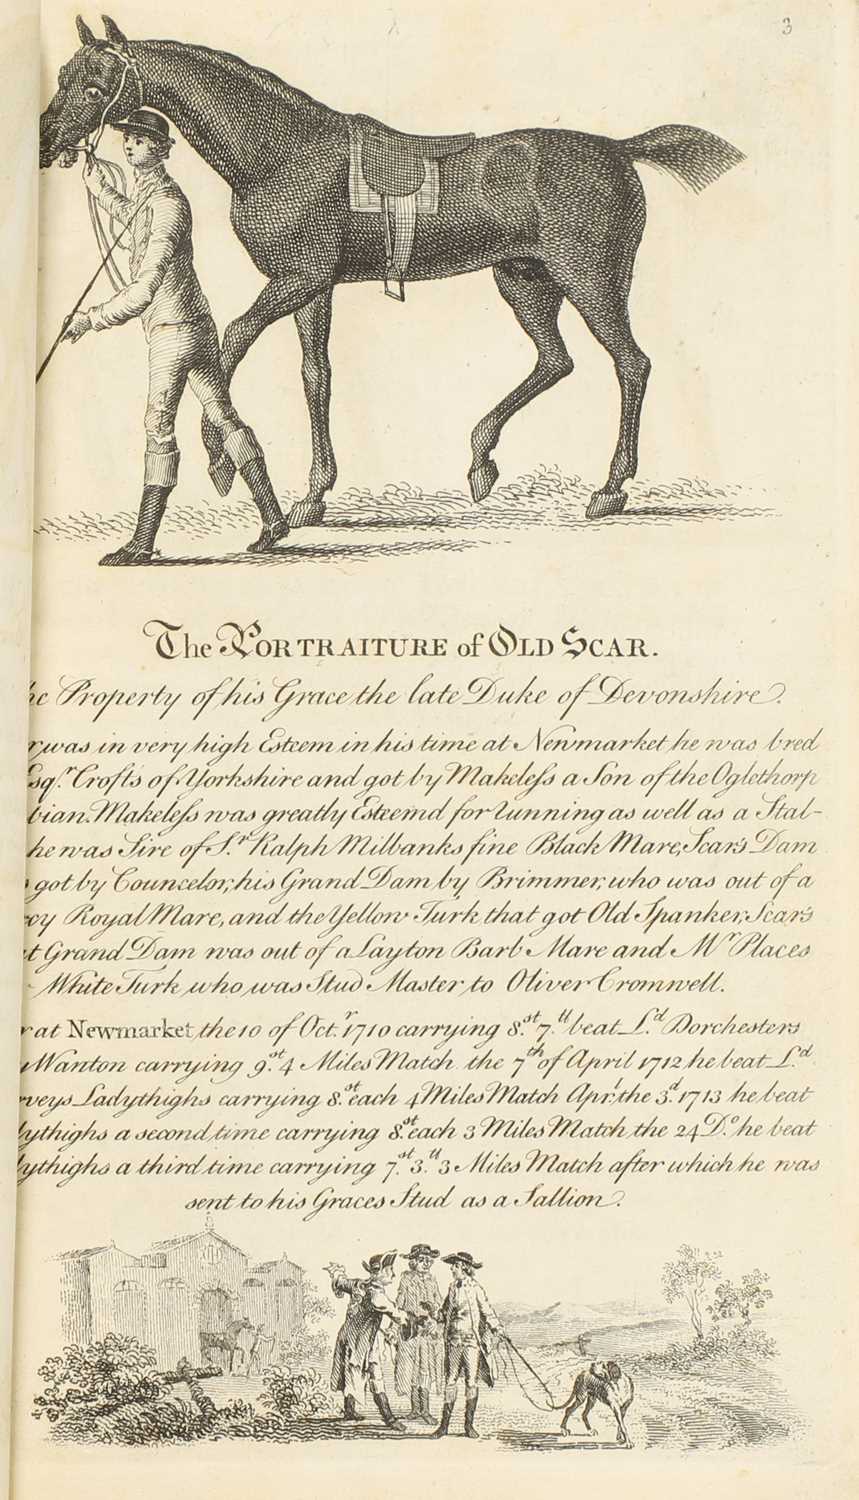 3
The PORTRAITURE of OLD SCAR.
Property of his Grace the late Duke of Devonshire.
was in very high Esteem in his time at Newmarket, he was bred
Esqr. Crofts of Yorkshire and got by Makeless a Son of the Oglethorp
bian. Makeless was greatly Esteemd for running as well as a Stal-
he was Sire of Sr. Ralph Milbanks fine Black Mare, Scar's Dam
got by Councelor, his Grand Dam by Brimmer, who was out of a
Royal Mare, and the Yellow Turk that got Old Spanker, Scar's
Grand Dam was out of a Layton Barb Mare and Mr. Places
White Turk, who was Stud Master to Oliver Cromwell.
at Newmarket, the 10 of Octr. 1710 carrying 8.st 7.tt beat Ld. Dorchesters
Wanton carrying 9.st 4 Miles Match the 7th of April 1712 he beat Ld.
rveys Ladythighs carrying 8.st each 4 Miles Match Aprl. the 3d. 1713 he beat
dythighs a second time carrying 8.st each 3 Miles Match, the 24 Do. he beat
dythighs a third time carrying 7.st 3.tt 3 Miles Match after which he was
sent to his Graces Stud as a Sallion.